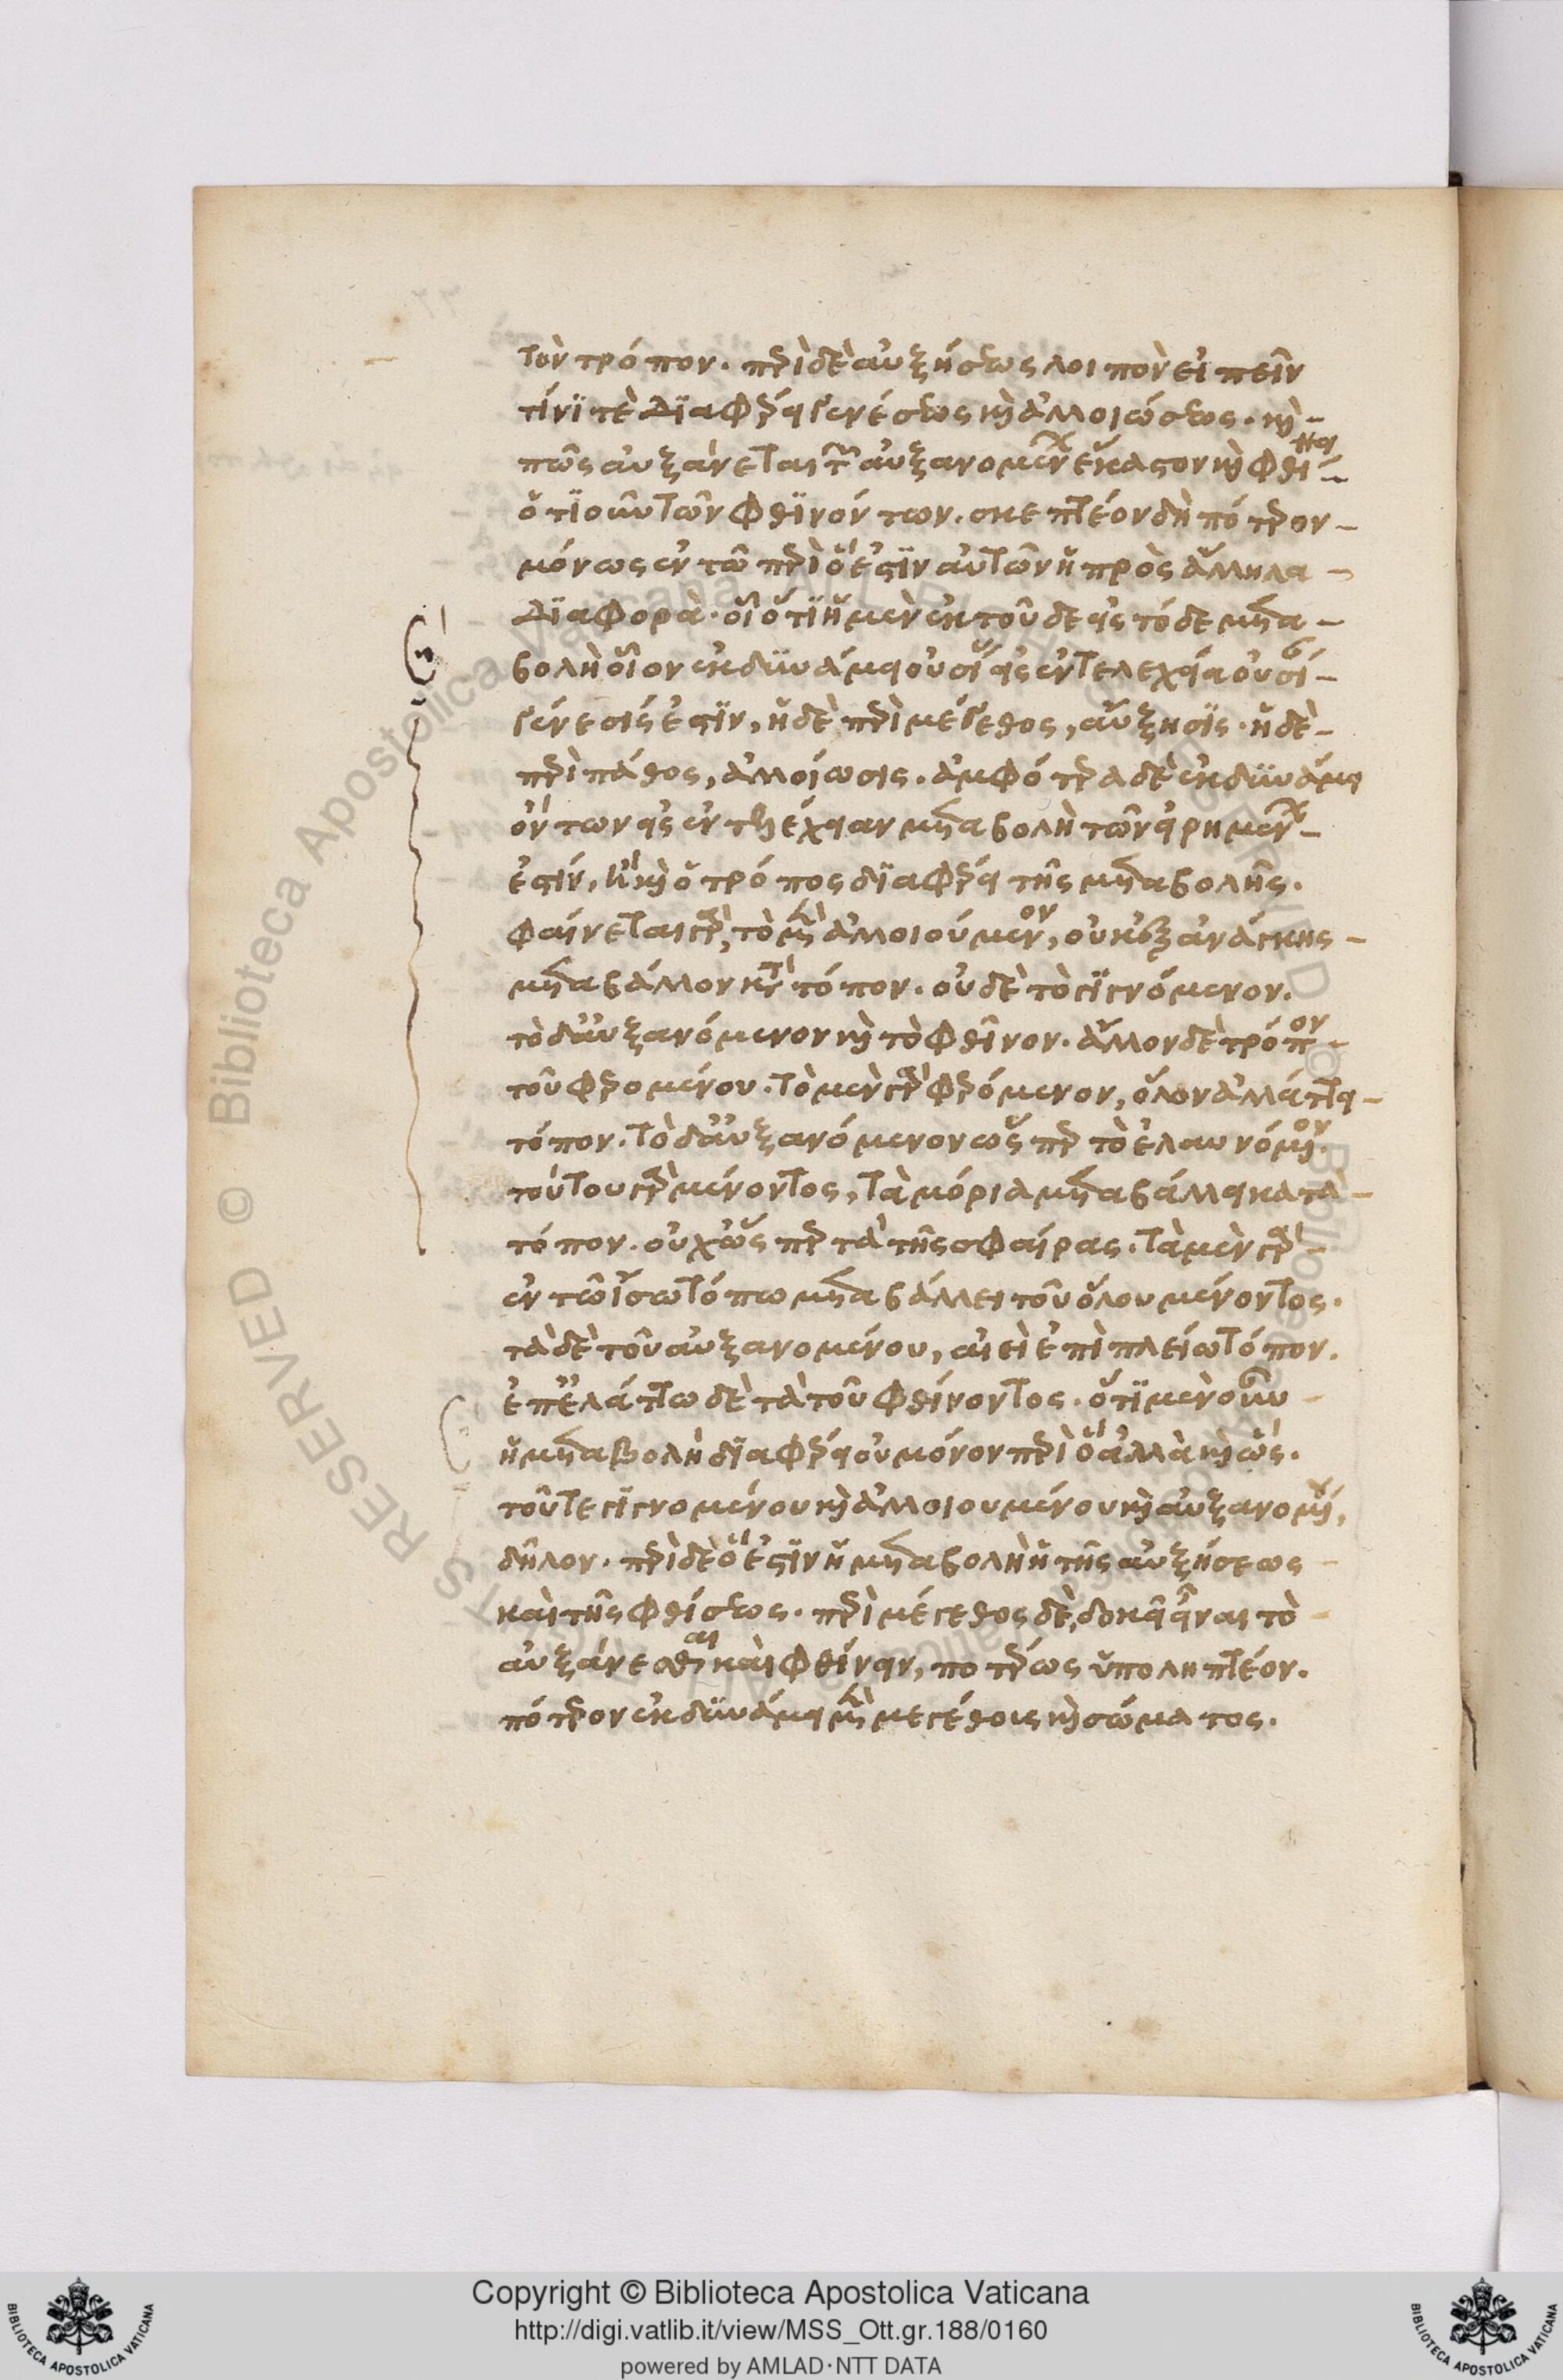 τὸν τρόπον. περὶ δὲ αὐξήσεως λοιπὸν εἰπεῖν
τίνι τὲ διαφέρει γενέσεως καὶ ἀλλοιώσεως. καὶ
πῶς αὐξάνεται τῶν αὐξανομένων ἕκαστον καὶ φθίνει
ὁτιοῦν τῶν φθινόντων. σκεπτέον δὴ πότερον
μόνως ἐν τῶ περὶ ὅ ἐστιν αὐτῶν ἡ πρὸς ἄλληλα
διαφορά. οἷ ὅτι ἡ μὲν ἐκ τοῦδε εἰς τόδε μετα
βολὴ οἷον ἐκ δυνάμει οὐσίας εἰς ἐντελεχεία οὐσίαν
γένεσίς ἐστιν, ἡ δὲ περὶ μέγεθος, αὔξησις. ἡ δὲ
περὶ πάθος, ἀλλοίωσις. ἀμφότερα δὲ ἐκ δυνάμει
ὄντων εἰς ἐντελέχειαν μεταβολὴ τῶν εἰρημένων
ἐστίν, ἢ καὶ ὁ τρόπος διαφέρει τῆς μεταβολῆς.
φαίνεται γὰρ, τὸ μὲν ἀλλοιούμενον, οὐκ ἐξ ἀνάγκης
μεταβάλλον κατὰ τόπον. οὐδὲ τὸ γιγνόμενον.
τὸ δ' αὐξανόμενον καὶ τὸ φθῖνον. ἄλλον δὲ τρόπον
τοῦ φερομένου. τὸ μὲν γὰρ φερόμενον, ὅλον ἀλλάττει
τόπον. τὸ δ' αὐξανόμενον ὥσπερ τὸ ἐλαυνόμενον.
τούτου γὰρ μένοντος, τὰ μόρια μεταβάλλει κατὰ
τόπον. οὐχ ὥσπερ τὰ τῆς σφαίρας. τὰ μὲν γὰρ
ἐν τῶ ἴσω τόπω μεταβάλλει τοῦ ὅλου μένοντος.
τὰ δὲ τοῦ αὐξανομένου, αἰεὶ ἐπὶ πλείω τόπον.
ἐπ' ἐλάττω δὲ τὰ τοῦ φθίνοντος. ὅτι μὲν οὖν
ἡ μεταβολὴ διαφέρει οὐ μόνον περὶ ὃ ἀλλὰ καὶ ὥς.
τοῦ τε γιγνομένου καὶ ἀλλοιουμένου καὶ αὐξανομένου,
δῆλον. περὶ δὲ ὅ ἐστιν ἡ μεταβολὴ ἡ τῆς αὐξήσεως
καὶ τῆς φθίσεως. περὶ μέγεθος δὲ, δοκεῖ εἶναι τὸ
αὐξάνεσθαι καὶ φθίνειν, ποτέρως ὑποληπτέον.
πότερον ἐκ δυνάμει μὲν μεγέθους καὶ σώματος.
Copyright © Biblioteca Apostolica Vaticana
http://digi.vatlib.it/view/MSS_Ott.gr.188/0160
powered by AMLAD·NTT DATA